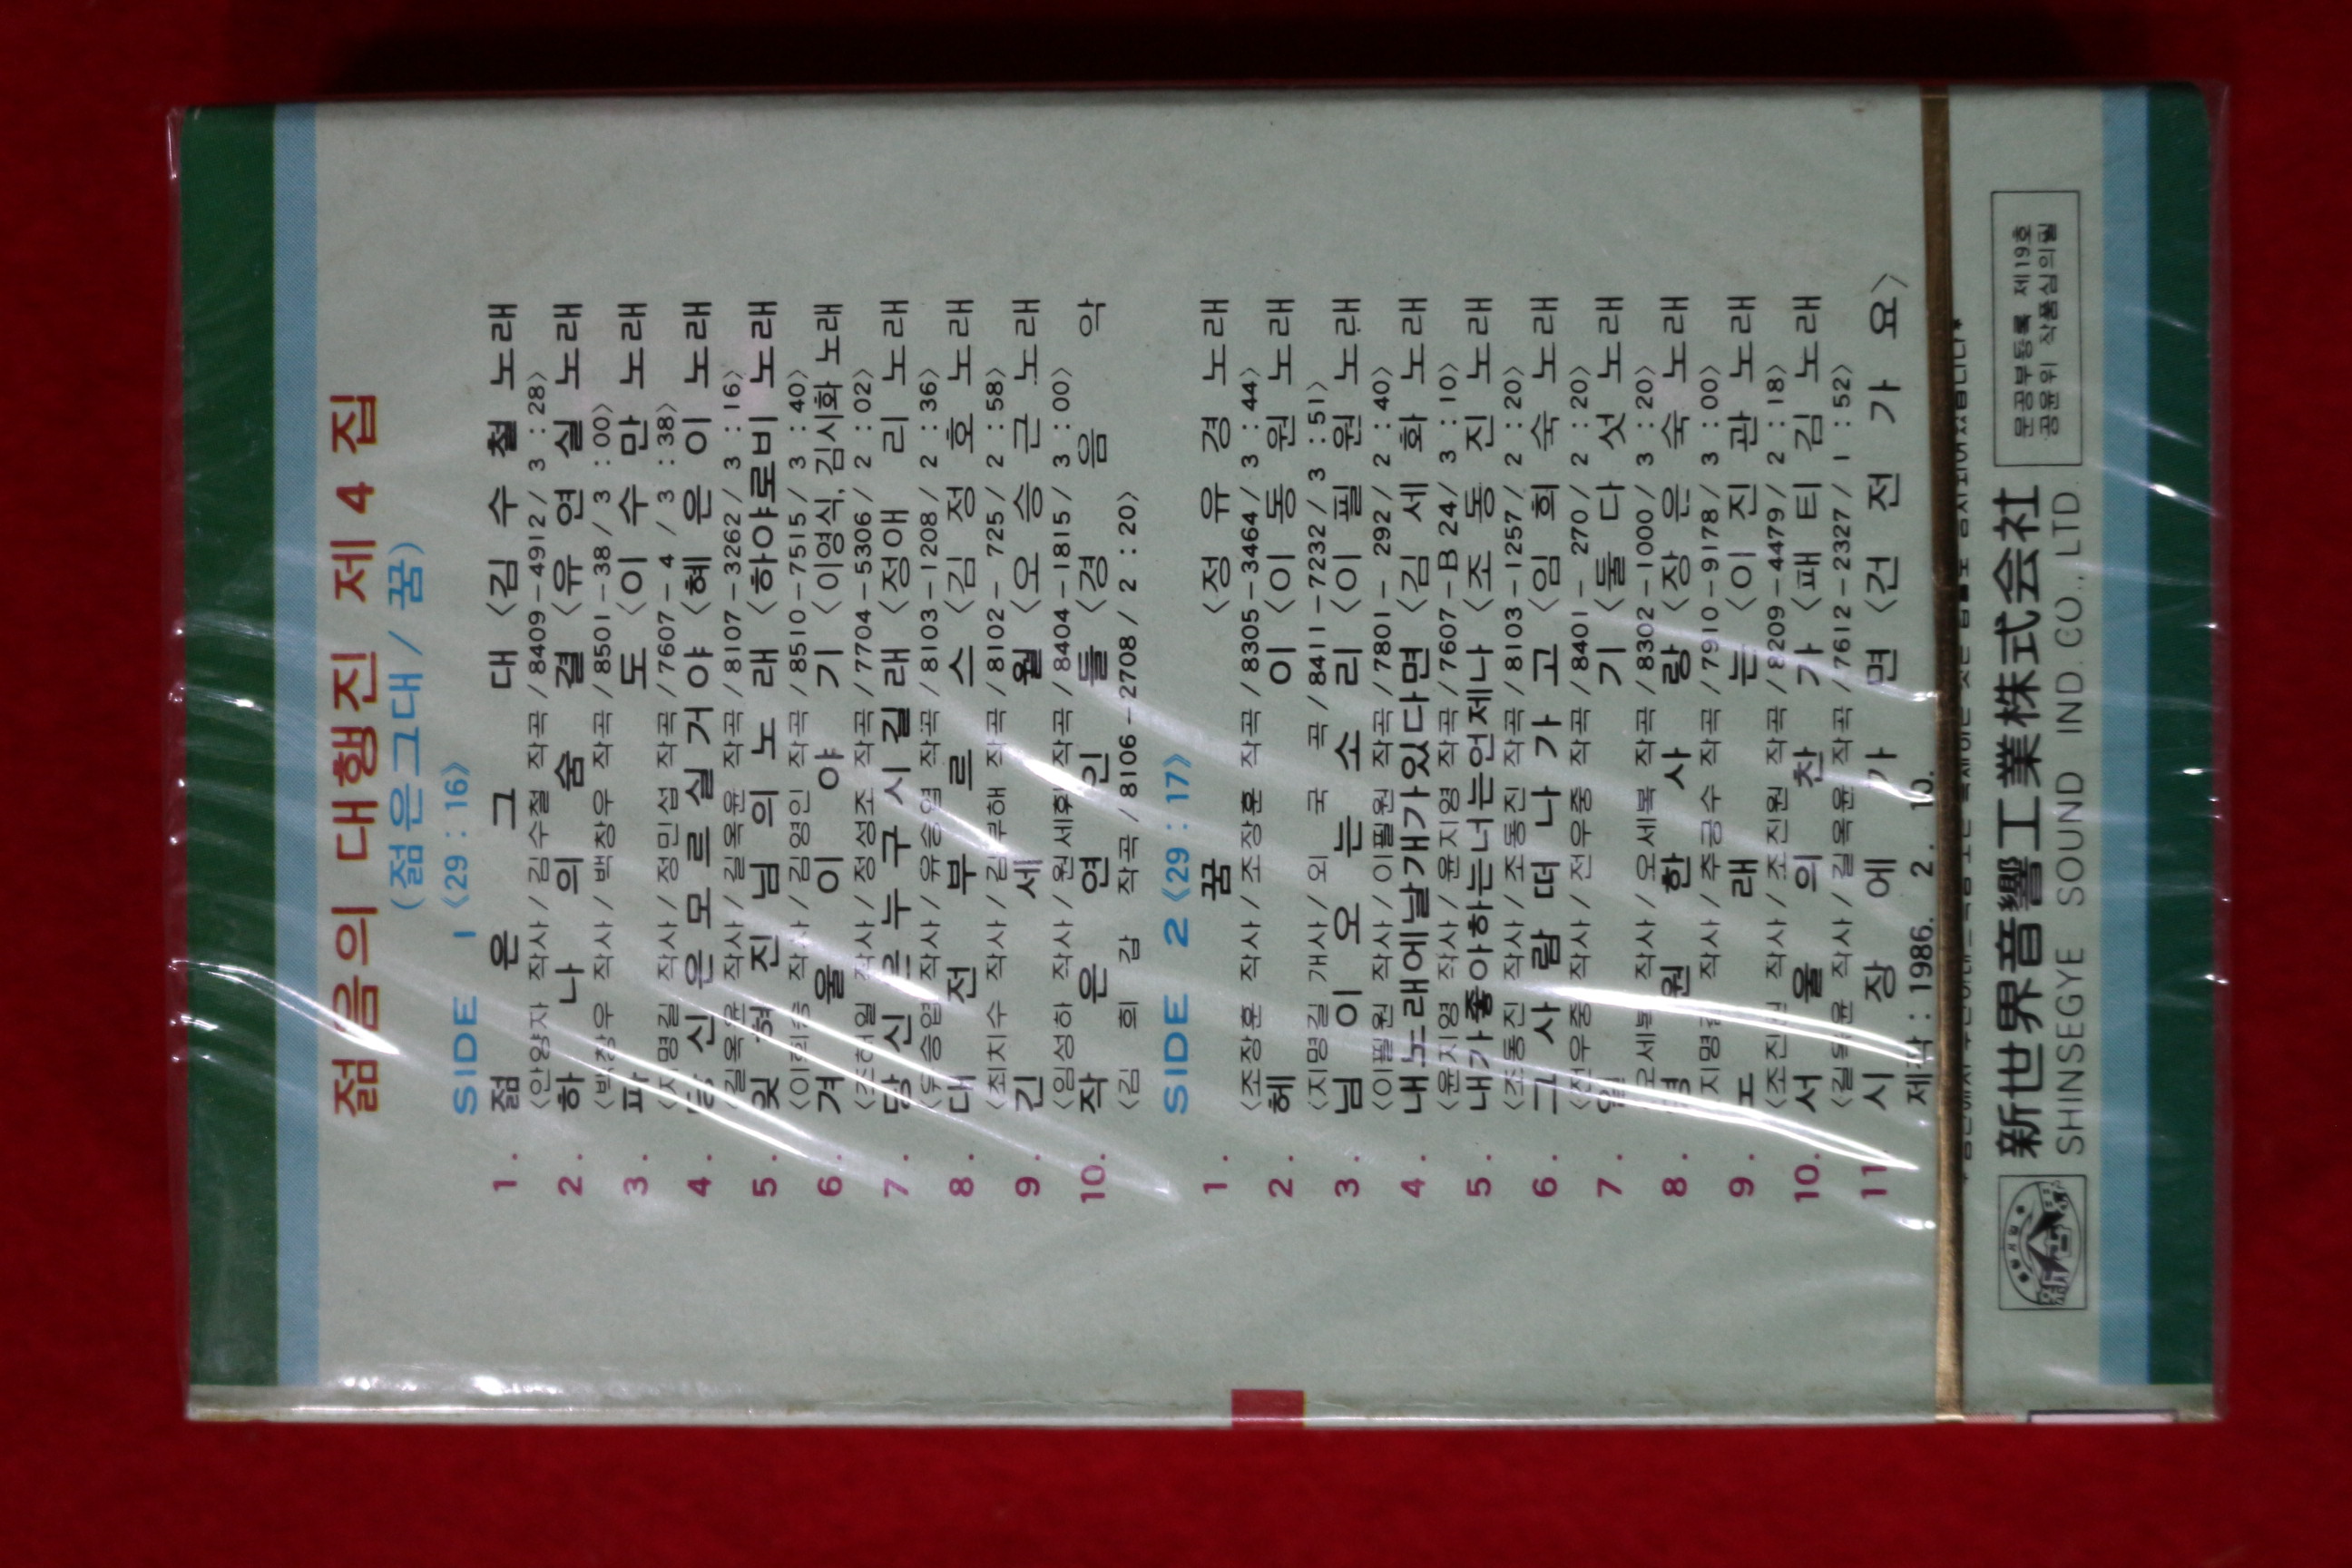 젊음의 대행진 제4집
(젊은그대/꿈)
SIDE 1 《29:16》
1. 젊은 그대 〈김수철 노래
〈안양자 작사/김수철 작곡/8409-4912/3:28〉
2. 하나의 숨결 〈유연실 노래
〈백창우 작사/백창우 작곡/8501-38/3:00〉
3. 파도 〈이수만 노래
〈지명길 작사/정민섭 작곡/7607-4/3:38〉
4. 당신은 모르실거야 〈혜은이 노래
〈길옥윤 작사/길옥윤 작곡/8107-3262/3:16〉
5. 잊혀진 님의 노래 〈하야로비 노래
작사/김영인 작곡/8510-7515/3:40〉
6. 겨울 이야기 〈이영식, 김시화 노래
작사/정성조 작곡/7704-5306/2:02〉
7. 당신은 누구시길래 〈정애리 노래
작사/유승엽 작곡/8103-1208/2:36〉
8. 대전부르스 〈김정호 노래
〈최치수 작사/김부해 작곡/8102-725/2:58〉
9. 긴 세월 〈오승근 노래
〈임성하 작사/원세휘 작곡/8404-1815/3:00〉
10. 작은 연인들 〈경음악
〈김희갑 작곡/8106-2708/2:20〉
SIDE 2 《29:17》
1. 꿈 〈정유경 노래
〈조장훈 작사/조장훈 작곡/8305-3464/3:44〉
2. 헤이 〈이동원 노래
〈지명길 개사/외국곡/8411-7232/3:51〉
3. 님이 오는 소리 〈이필원 노래
〈이필원 작사/이필원 작곡/7801-292/2:40〉
4. 내노래에날개가있다면 〈김세화 노래
〈윤지영 작사/윤지영 작곡/7607-B24/3:10〉
5. 내가좋아하는너는언제나 〈조동진 노래
〈조동진 작사/조동진 작곡/8103-1257/2:20〉
6. 그사람 떠나가고 〈임희숙 노래
〈전우중 작사/전우중 작곡/8401-270/2:20〉
7. 일기 〈둘다섯 노래
〈오세복 작사/오세복 작곡/8302-1000/3:20〉
8. 영원한 사랑 〈장은숙 노래
지명길 작사/추긍수 작곡/7910-9178/3:00〉
9. 노래는 〈이진관 노래
〈조진원 작사/조진원 작곡/8209-4479/2:18〉
10. 서울의 찬가 〈패티김 노래
〈길옥윤 작사/길옥윤 작곡/7612-2327/1:52〉
11. 시장에 가면 〈건전가요〉
제작:1986. 2. 10.
新世界音響工業株式会社
SHINSEGYE SOUND IND. CO., LTD.
문공부등록 제19호
공윤위 작품심의필